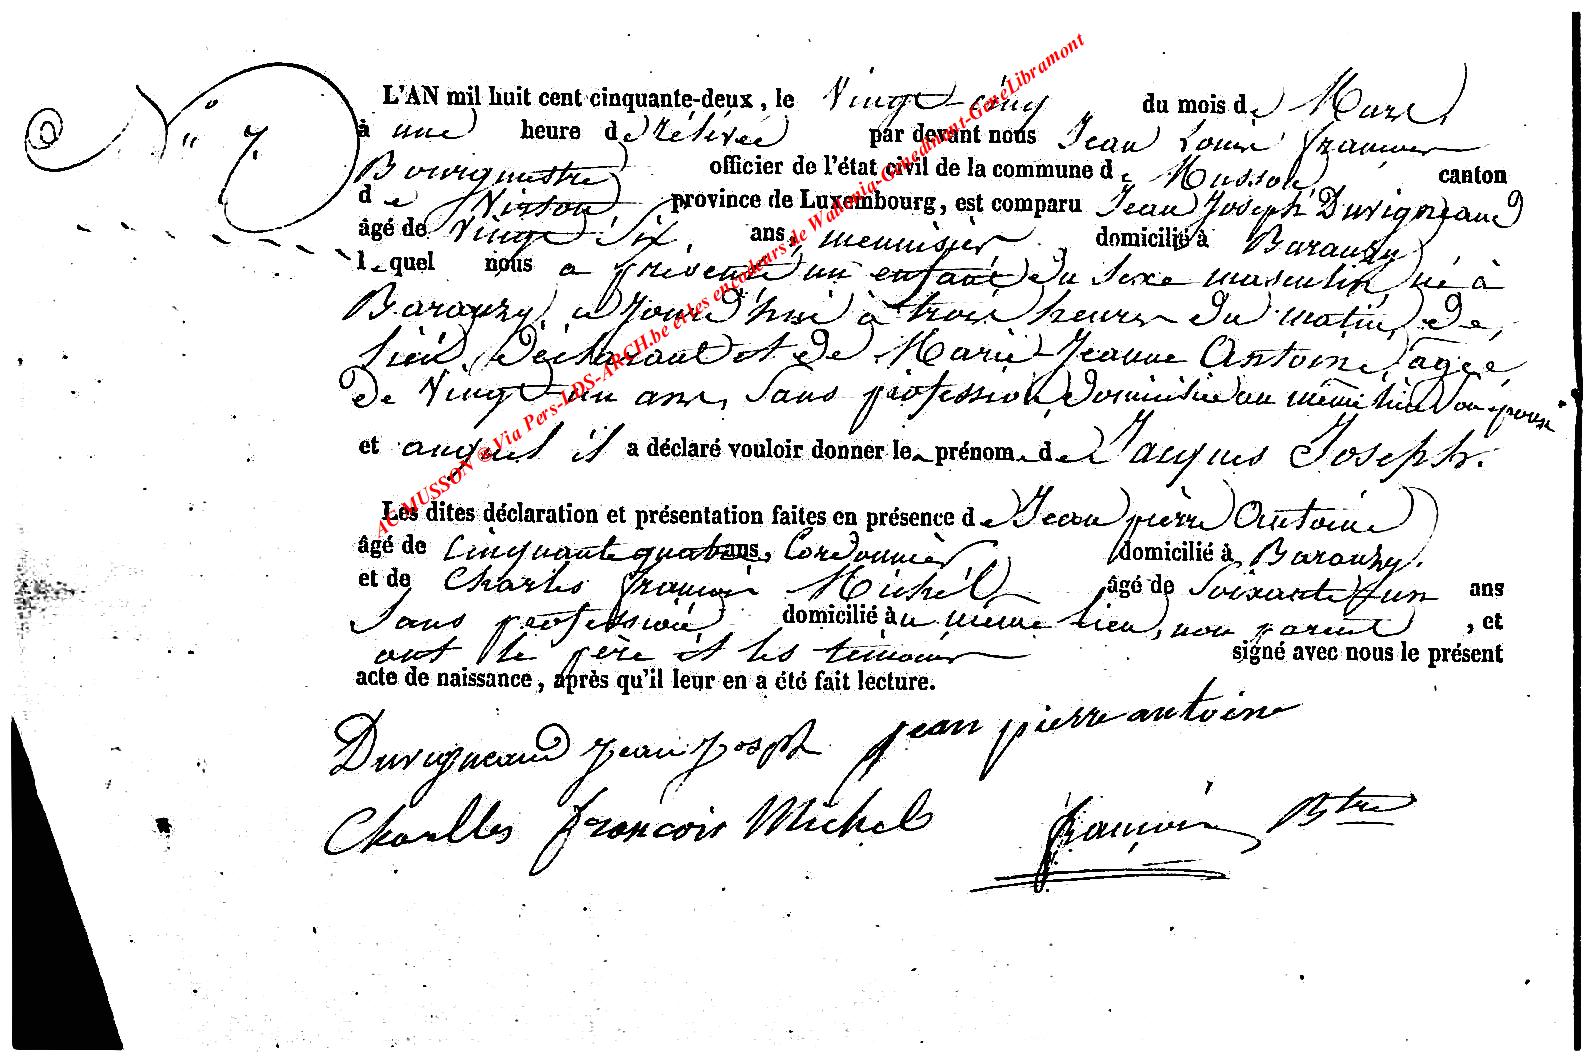 N° 7.
L'AN mil huit cent cinquante-deux, le Vingt-cinq du mois de Mars,
à une heure de rélévée par devant nous Jean Louis françois
Bourgmestre officier de l'état civil de la commune de Musson, canton
de Virton, province de Luxembourg, est comparu Jean Joseph Duvigneaud
âgé de Vingt Six, ans, menuisier, domicilié à Baranzy
lequel nous a présenté un enfant du sexe masculin, né à
Baranzy, ce jourd'hui à trois heures du matin, de,
lui, déclarant et de Marie-Jeanne Antoine, agée,
de Vingt-un ans, Sans profession, domiciliée au même lieu, son épouse
et auquel il a déclaré vouloir donner le prénom de Jacques Joseph.
Les dites déclaration et présentation faites en présence de Jean pierre Antoine
âgé de Cinquante quatre ans, Cordonnier domicilié à Baranzy.
et de Charles françois Michel, âgé de Soixante un ans
Sans profession, domicilié au même lieu, non parent, et
ont le père et les témoins signé avec nous le présent
acte de naissance, après qu'il leur en a été fait lecture.
Duvigneaud jean joseph jean pierre antoine
Charlles françois Michel françois Btre
AC MUSSON @ Via Pers-LDS-ARCH.be et les encodeurs de Wallonia-Genedinant-GeneLibramont